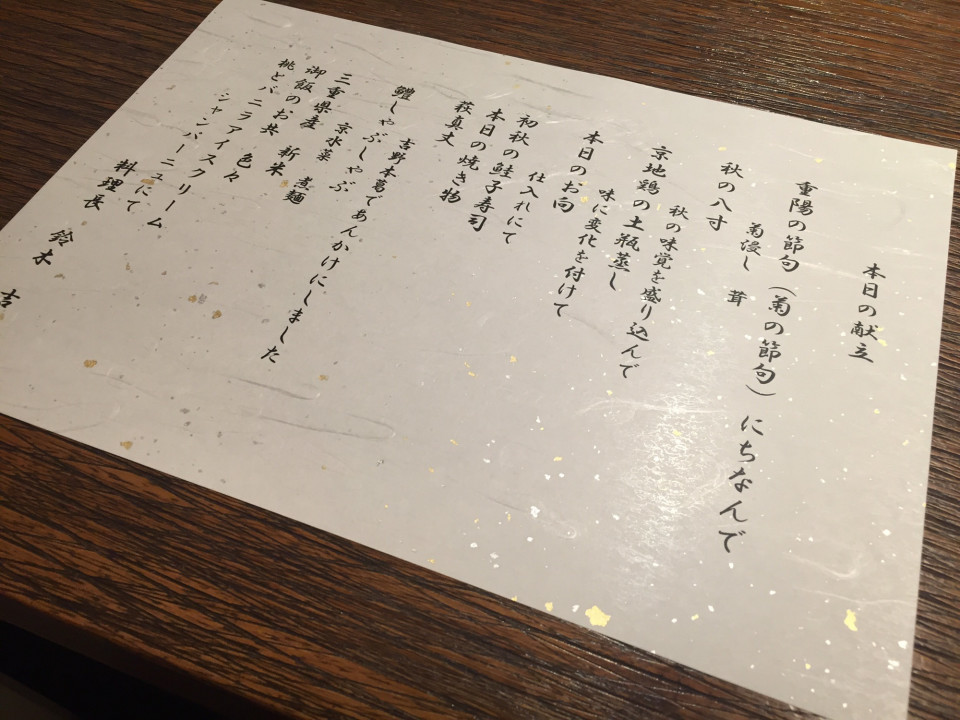 本日の献立
重陽の節句（菊の節句）にちなんで
菊浸し　茸
秋の八寸
秋の味覚を盛り込んで
京地鶏の土瓶蒸し
味に変化を付けて
本日のお向
仕入れにて
初秋の鮭子寿司
本日の焼き物
萩真丈
吉野本葛であんかけにしました
鱧しゃぶしゃぶ
京水菜　煮麺
三重県産　新米
御飯のお共　色々
桃とバニラアイスクリーム
シャンパーニュにて
料理長　鈴木　吉